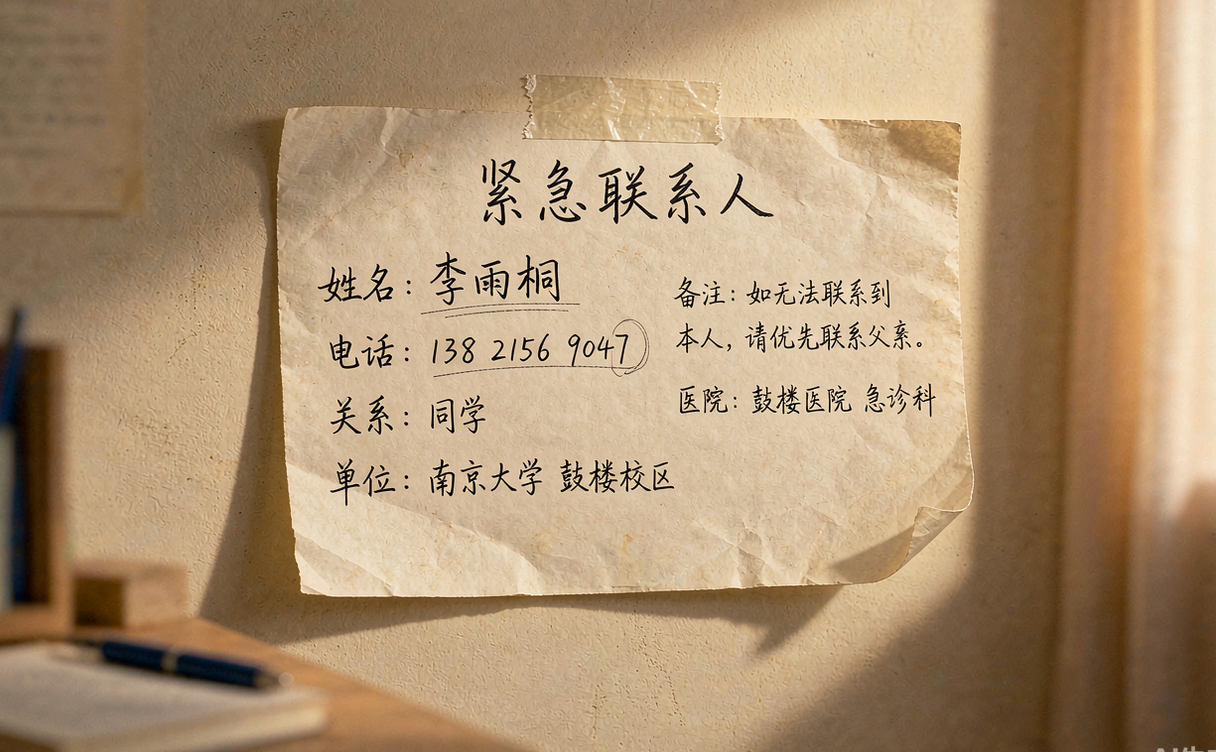 紧急联系人
姓名：李雨桐
电话：138 2156 9047
关系：同学
单位：南京大学 鼓楼校区
备注：如无法联系到
本人，请优先联系父亲。
医院：鼓楼医院 急诊科